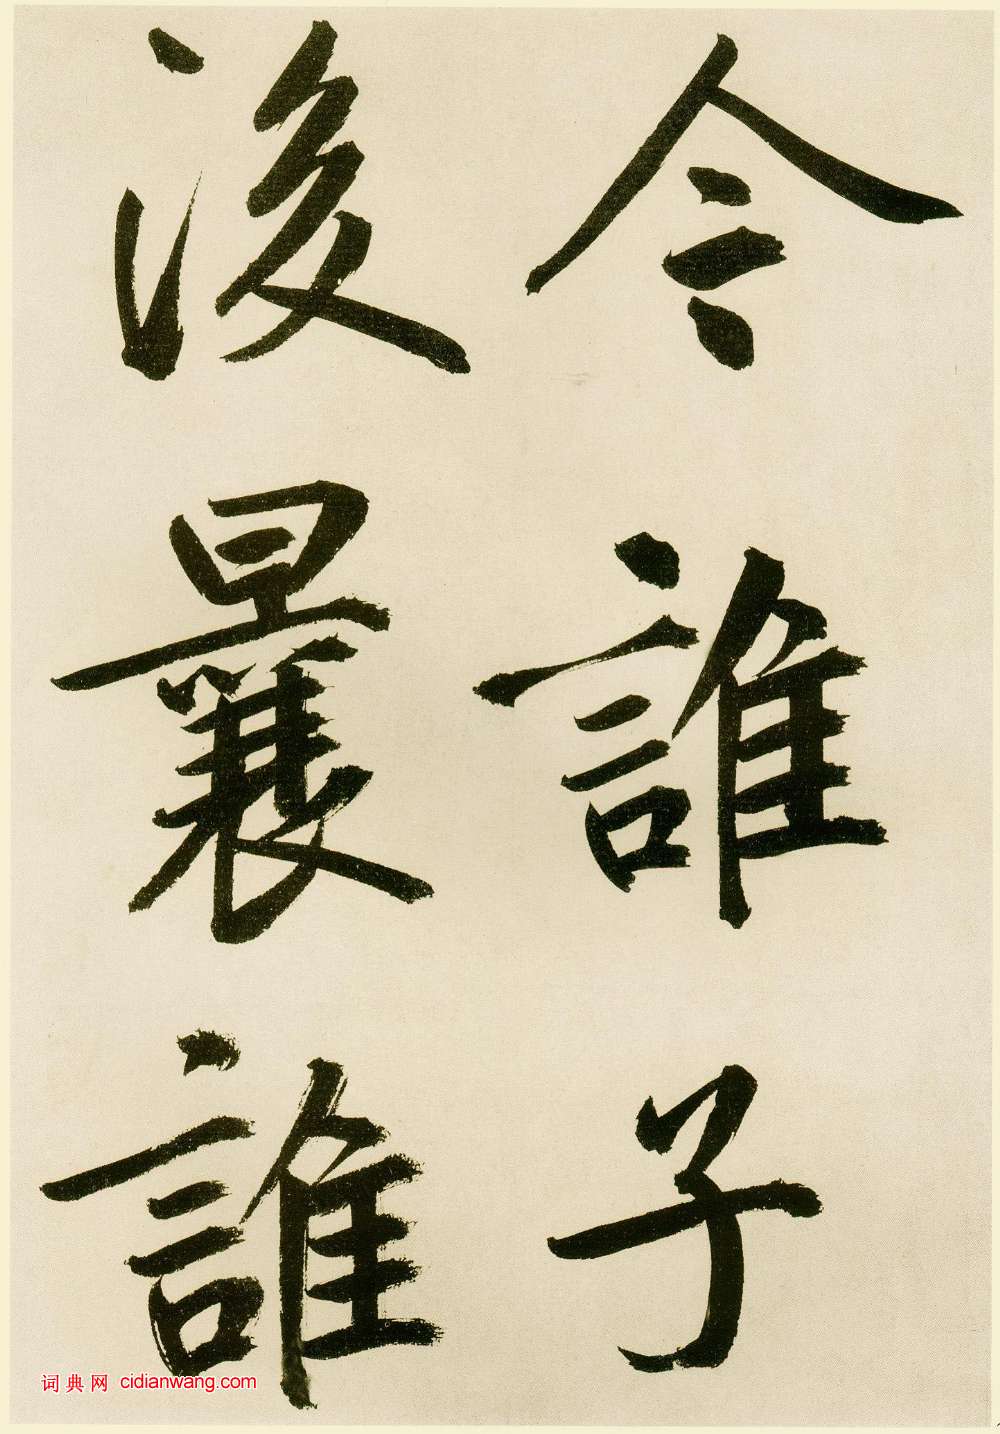 今誰子
後曩誰
词典网 cidianwang.com